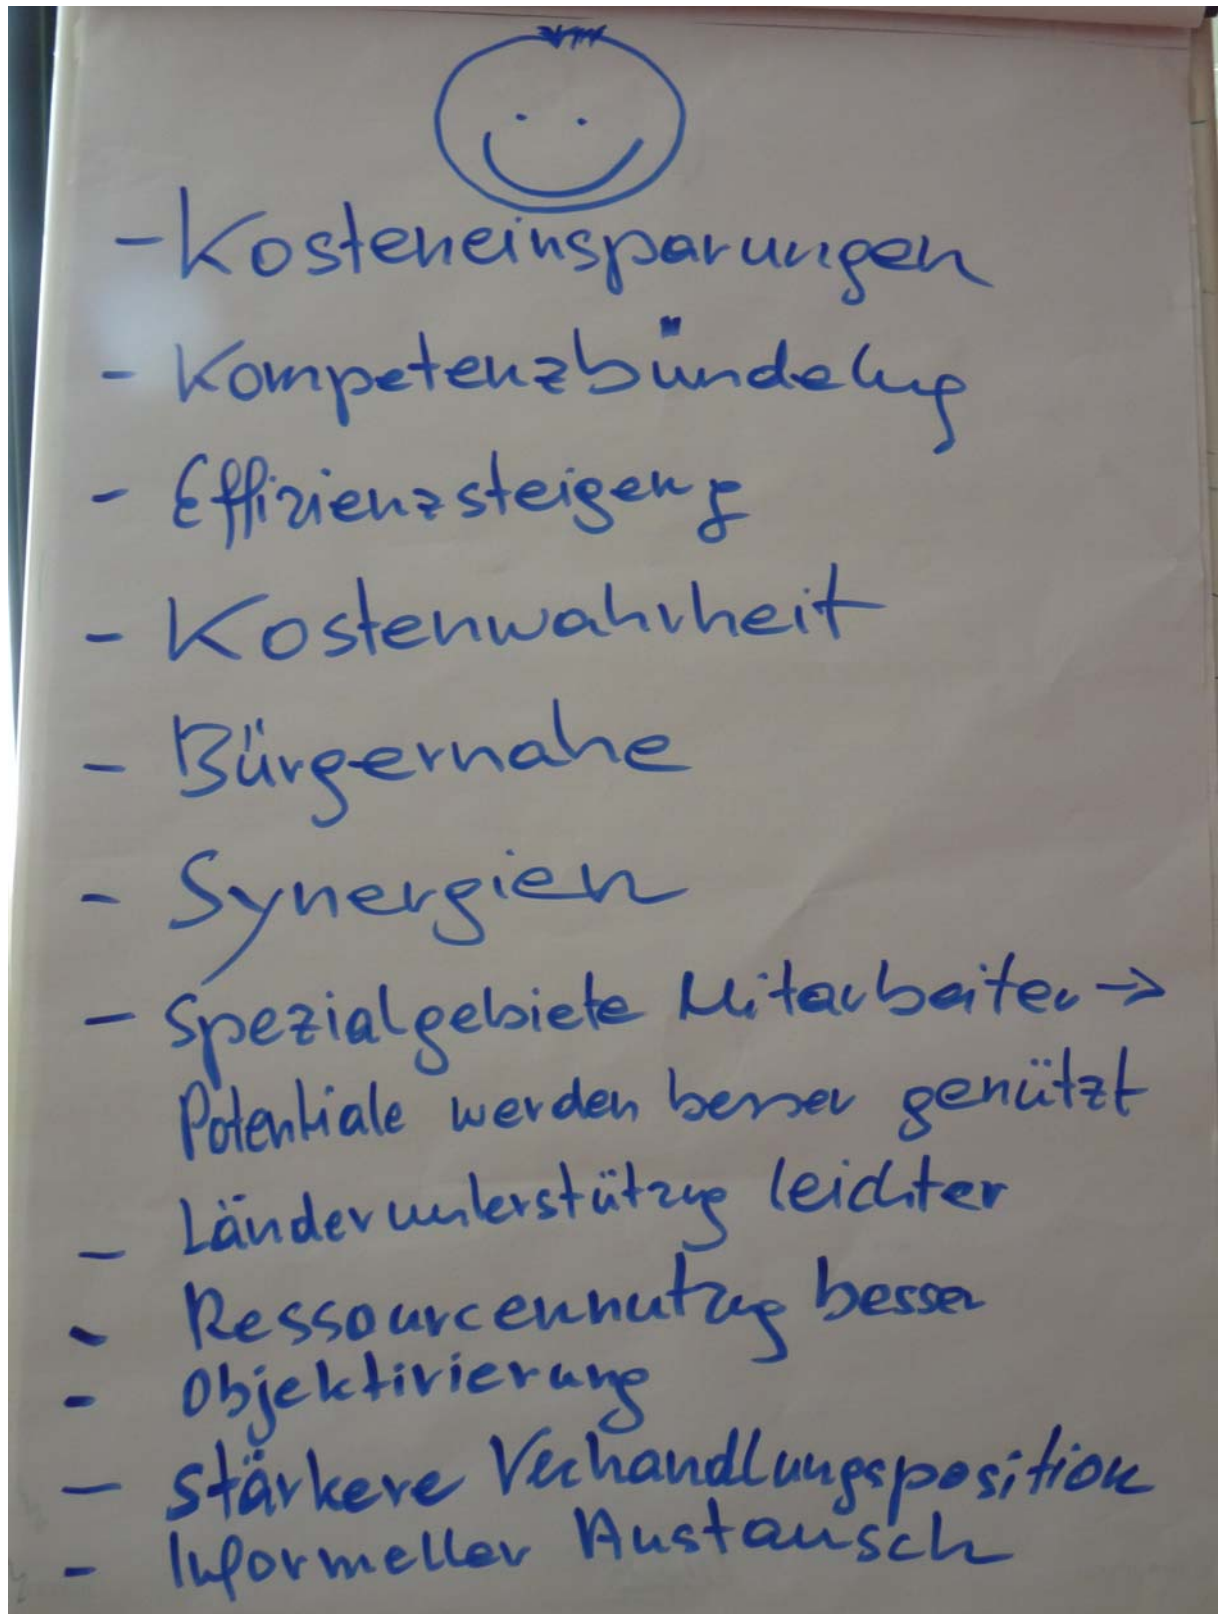 - Kosteneinsparungen
- Kompetenzbündelung
- Effizienzsteigerung
- Kostenwahrheit
- Bürgernahe
- Synergien
- Spezialgebiete Mitarbeiter →
Potentiale werden besser genützt
- Länderunterstützung leichter
- Ressourcennutzung besser
- Objektivierung
- stärkere Verhandlungsposition
- Informeller Austausch